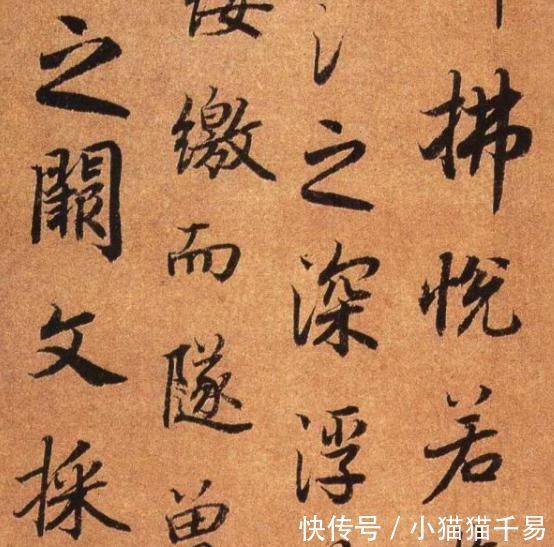 拂悅若
之深浮
繳而隧
之闕文採
快传号 / 小猫猫千易